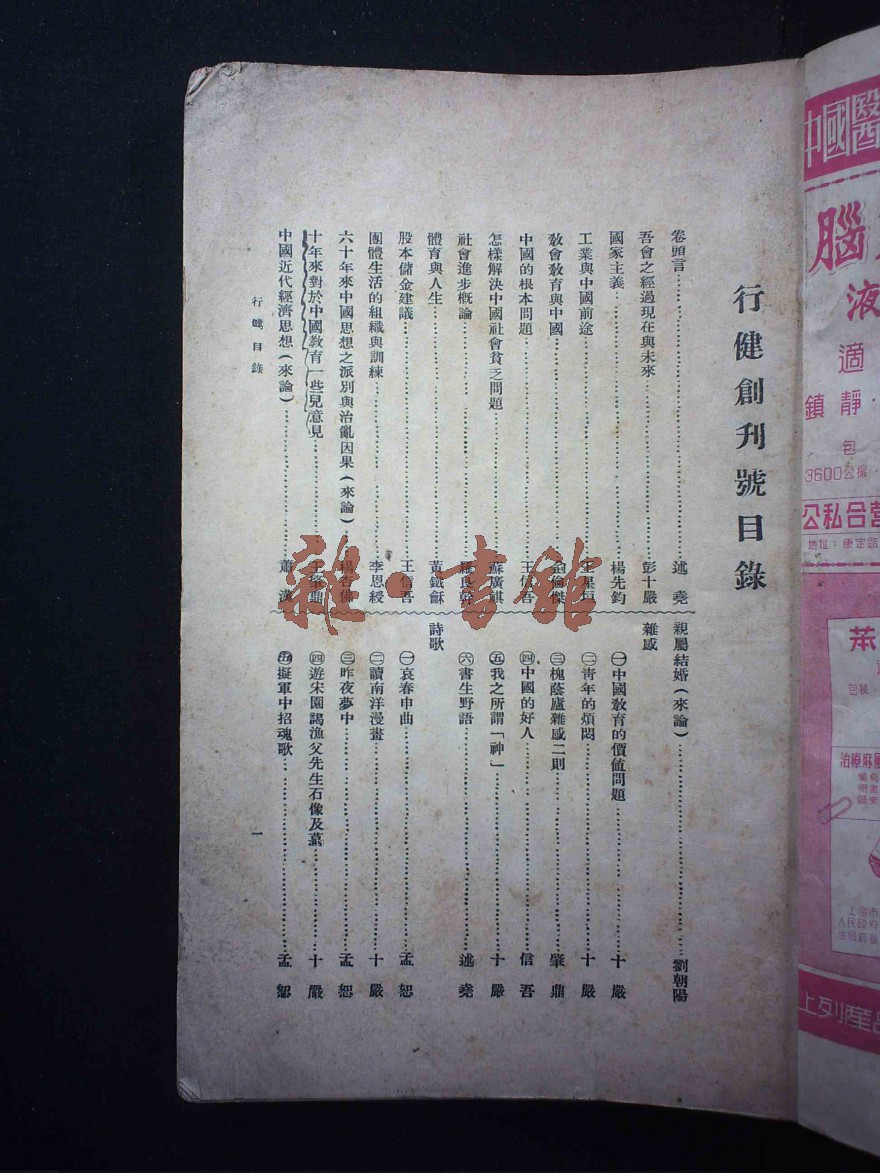 行健創刊號目錄
卷頭言……述堯
吾會之經過現在與未來……彭十嚴
國家主義……楊先鈞
工業與中國前途
教會教育與中國……劉倫傑
中國的根本問題……王信吾
怎樣解決中國社會貧乏問題……蘇廣祺
社會進步概論……良幹
體育與人生……黃鐵龢
股本儲金建議……王信吾
團體生活的組織與訓練……李恩綬
六十年來中國思想之派別與治亂因果(來論)……楊杏佛
十年來對於中國教育一些兒意見……王肇鼎
中國近代經濟思想(來論)……蕭漢
親屬結婚(來論)……劉朝陽
雜感
㊀中國教育的價值問題……十嚴
㊁靑年的煩悶……十嚴
㊂槐蔭廬雜感二則……肇鼎
㊃中國的好人……信吾
㊄我之所謂「神」……十嚴
㊅書生野語……述堯
詩歌
㊀哀春申曲……孟恕
㊁讀南洋漫畫……十嚴
㊂昨夜夢中……孟恕
㊃遊宋園謁漁父先生石像及墓……十嚴
㊄擬軍中招魂歌……孟恕
行健目錄
一
雜·書館
中國醫
腦
液
適
鎮靜
包
3600公撮
公私合營
地址:康定路
苯
包裝
治療麻
上海市
人民政府
上列產品